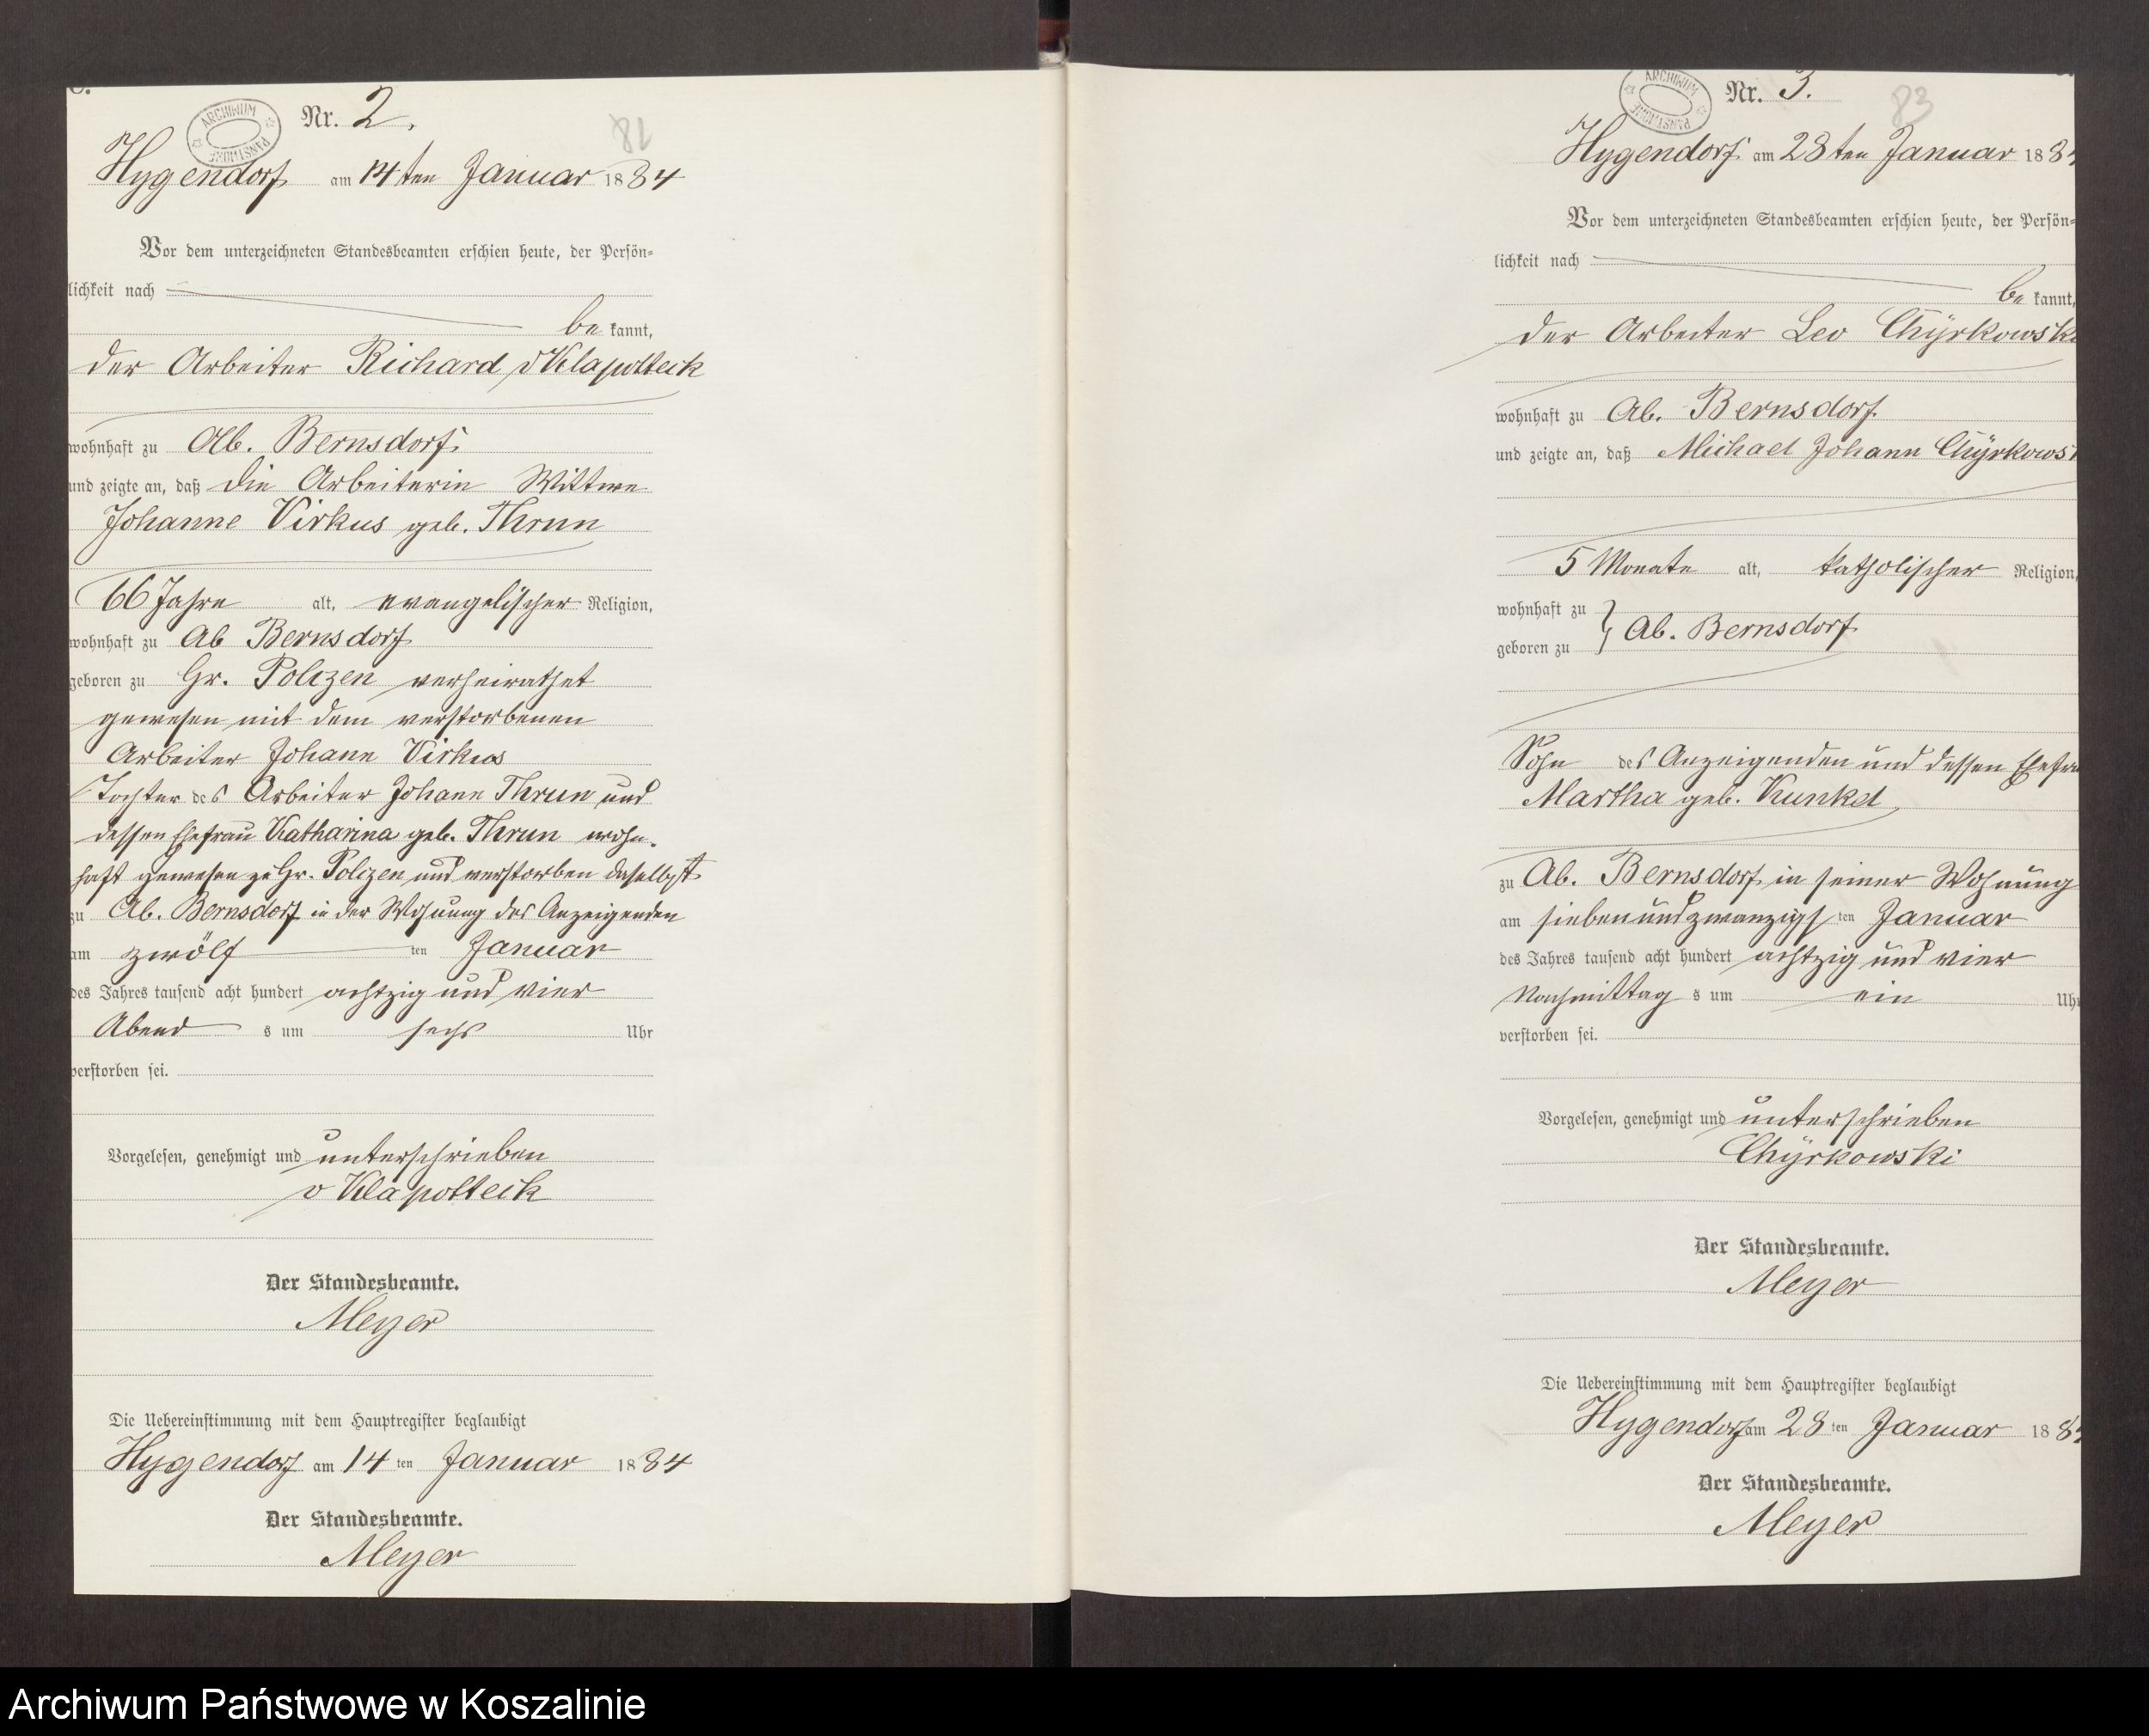 C.
ARCHIWUM PAŃSTWOWE
Nr. 2.
82
Hygendorf am 14ten Januar 1884
Vor dem unterzeichneten Standesbeamten erschien heute, der Persön=
lichkeit nach
be kannt,
der Arbeiter Richard v Klapotteck
wohnhaft zu Alb. Bernsdorf
und zeigte an, daß die Arbeiterin Wittwe
Johanne Virkus geb. Thrun
66 Jahre alt, evangelischer Religion,
wohnhaft zu Ab Bernsdorf
geboren zu Gr. Polczen verheirathet
gewesen mit dem verstorbenen
Arbeiter Johann Virkus
Tochter des Arbeiter Johann Thrun und
dessen Ehefrau Katharina geb. Thrun wohn-
haft gewesen zu Gr. Polczen und verstorben daselbst
zu Ab. Bernsdorf in der Wohnung des Anzeigenden
am zwölf ten Januar
des Jahres tausend acht hundert achtzig und vier
Abend s um sechs Uhr
verstorben sei.
Vorgelesen, genehmigt und unterschrieben
v Klapotteck
Der Standesbeamte.
Meyer
Die Uebereinstimmung mit dem Hauptregister beglaubigt
Hygendorf am 14 ten Januar 1884
Der Standesbeamte.
Meyer
ARCHIWUM PAŃSTWOWE
Nr. 3.
83
Hygendorf am 28ten Januar 188
Vor dem unterzeichneten Standesbeamten erschien heute, der Persön=
lichkeit nach
be kannt,
der Arbeiter Leo Chÿrkowski
wohnhaft zu Ab. Bernsdorf
und zeigte an, daß Michael Johann Chÿrkows
5 Monate alt, katholischer Religion,
wohnhaft zu
geboren zu } Ab. Bernsdorf
Sohn des Anzeigenden und dessen Ehefra
Martha geb. Kunkel
zu Ab. Bernsdorf in seiner Wohnung
am siebenundzwanzigs ten Januar
des Jahres tausend acht hundert achtzig und vier
Nachmittag s um ein Uhr
verstorben sei.
Vorgelesen, genehmigt und unterschrieben
Chÿrkowski
Der Standesbeamte.
Meyer
Die Uebereinstimmung mit dem Hauptregister beglaubigt
Hygendorf am 28 ten Januar 188
Der Standesbeamte.
Meyer
Archiwum Państwowe w Koszalinie